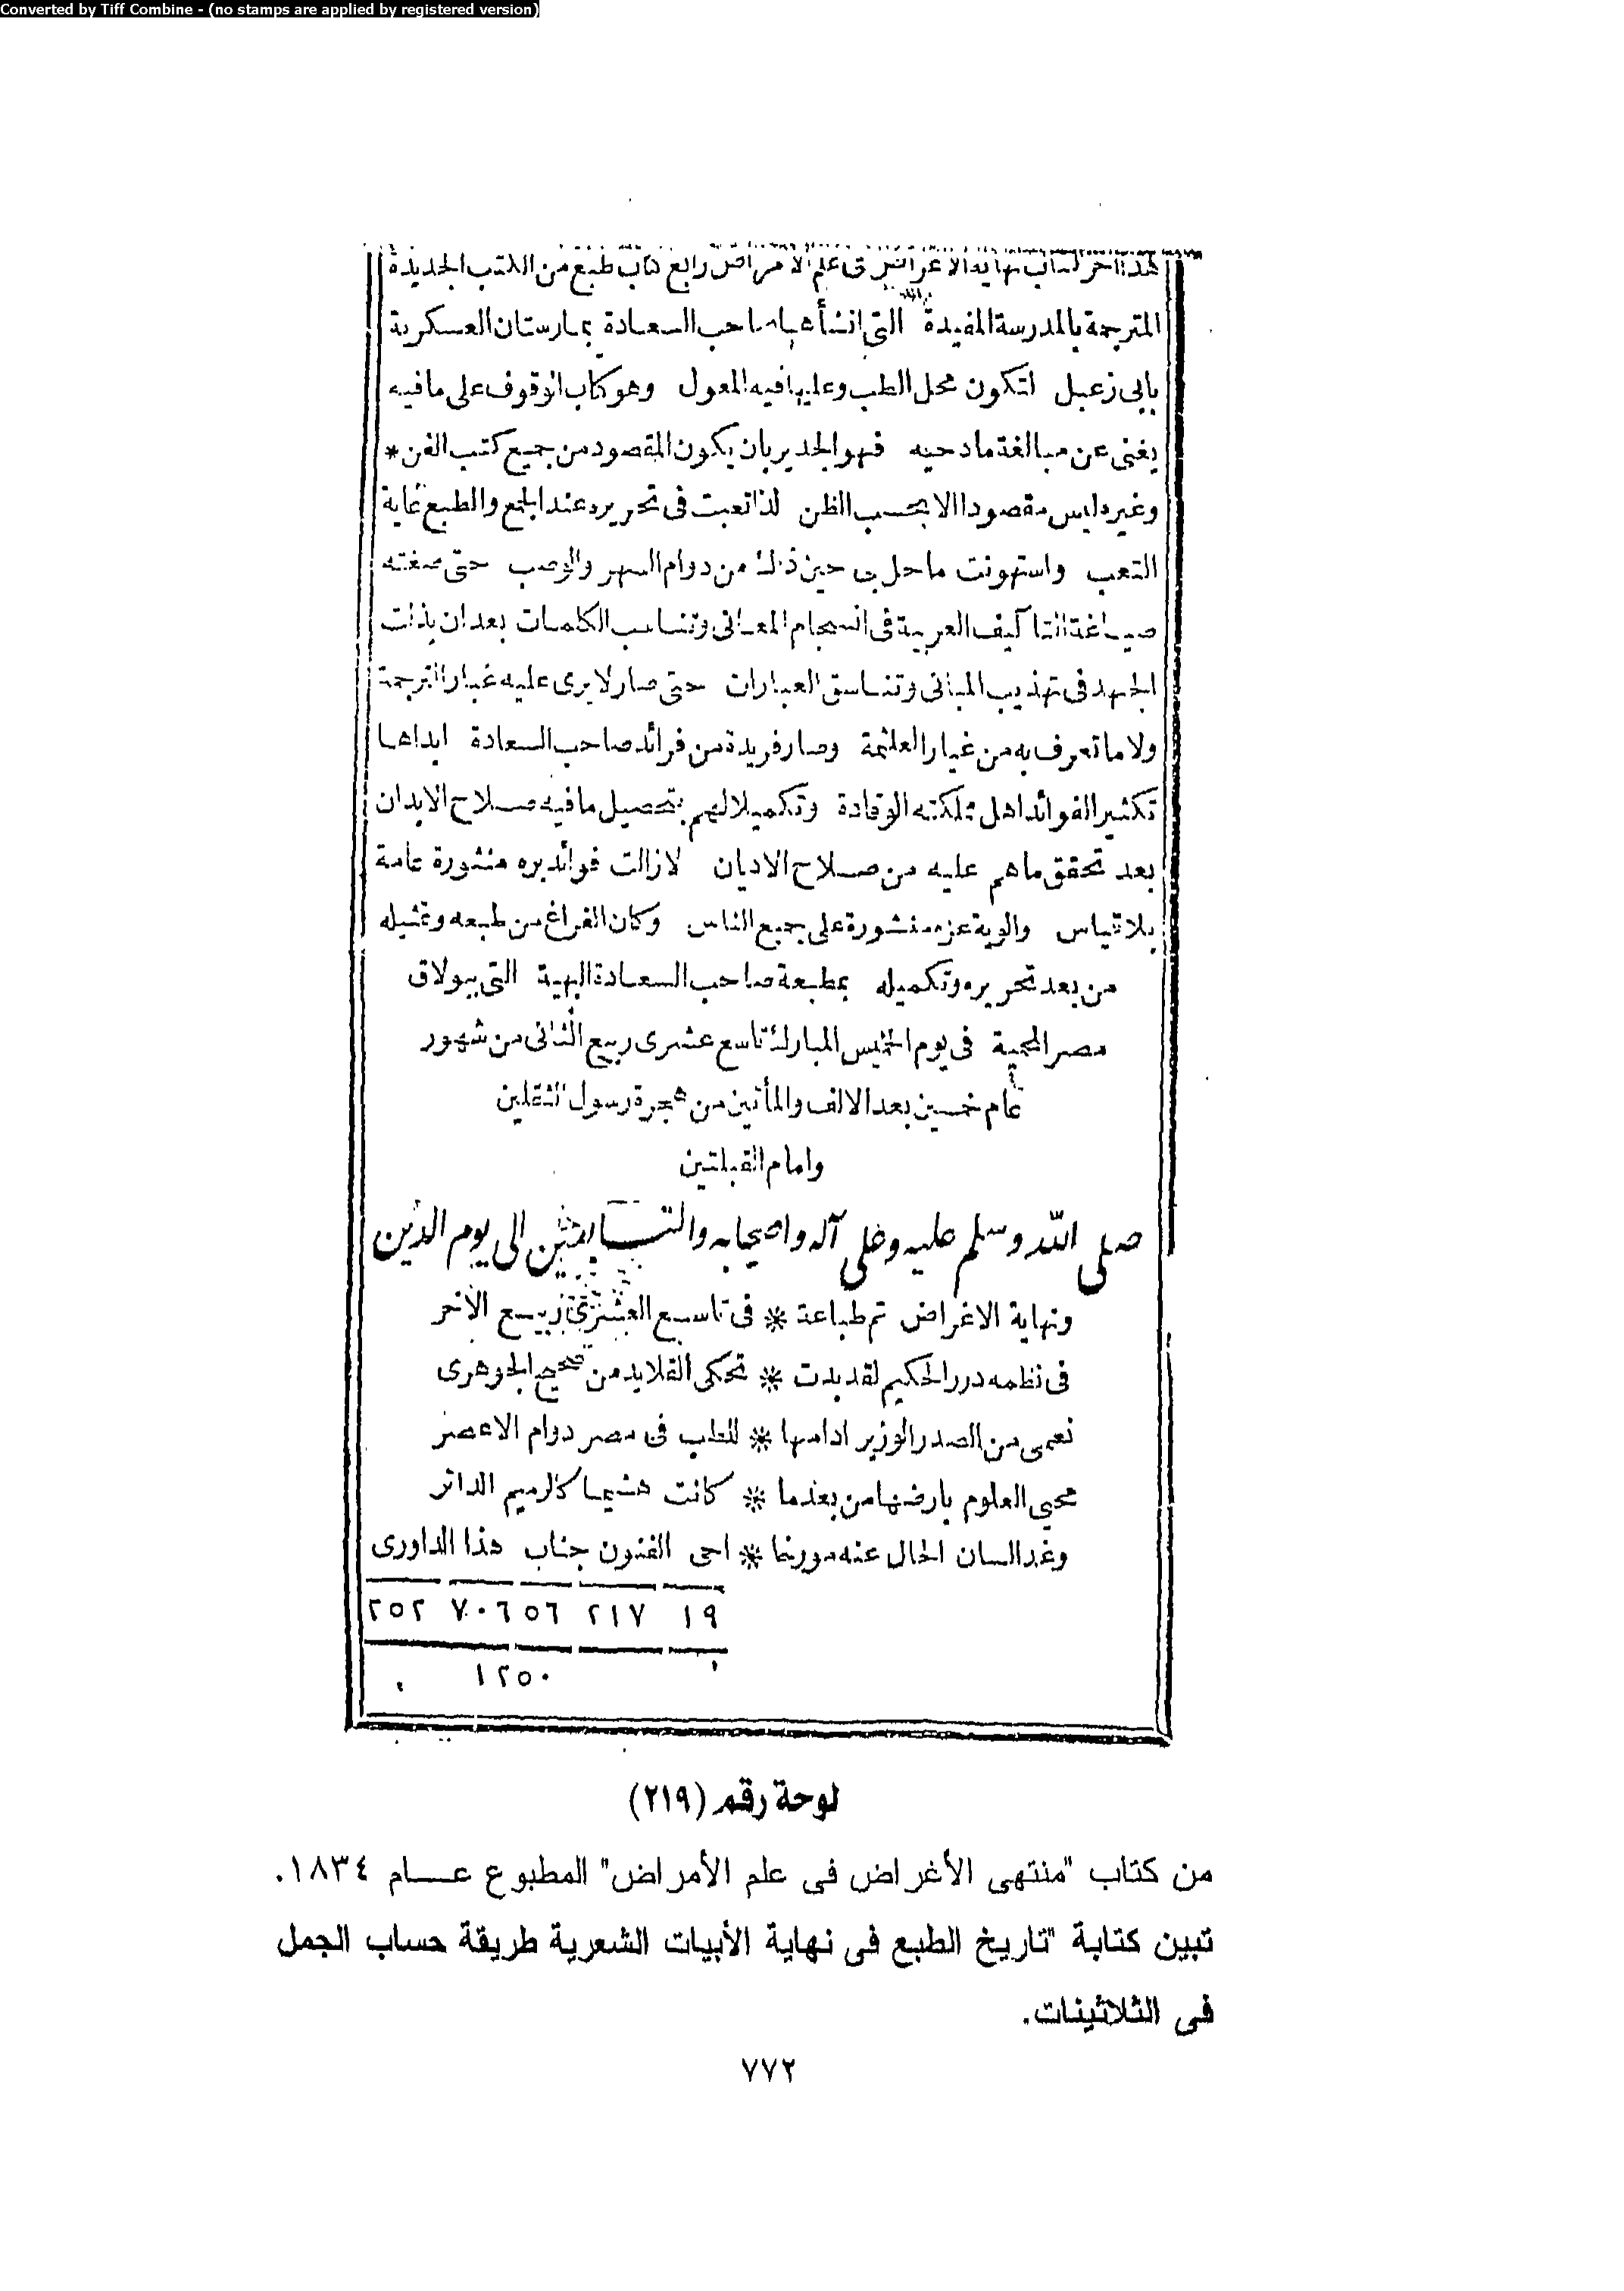 Converted by Tiff Combine - (no stamps are applied by registered version)
هذا آخر كتاب نهاية الاغراض فى علم الامراض رابع كتاب طبع من الكتب الجديدة
المترجمة بالمدرسة المفيدة التى انشأها صاحب السعادة بمارستان العسكرية
بابى زعبل لتكون محل الطب وعليها فيه المعول وهو كتاب الوقوف على ما فيه
يغنى عن مبالغة مادحيه فهو الجدير بان يكون المقصود من جميع كتب الفن *
وغيره ليس مقصودا الا بحسب الظن لذا تعبت فى تحريره عند الجمع والطبع غاية
التعب واستهونت ما حل بى حين ذلك من دوام السهر والوصب حتى صغته
صياغة التآليف العربية فى انسجام المعانى وتناسب الكلمات بعد ان بذلت
الجهد فى تهذيب المبانى وتناسق العبارات حتى صار لا يرى عليه غبار الترجمة
ولا ما تعرف به من غيار العلثمة وصار فريدة من فرائد صاحب السعادة ابداها
تكثير الفوائد اهل مملكته الوقادة وتكميلا لهم بتحصيل ما فيه صلاح الابدان
بعد تحقق ما هم عليه من صلاح الاديان لازالت فوائد بره منثورة عامة
بلا قياس والوية عزه منشورة على جميع الناس وكان الفراغ من طبعه وتمثيله
من بعد تحريره وتكميله بمطبعة صاحب السعادة البهية التى ببولاق
مصر المحمية فى يوم الخميس المبارك تاسع عشرى ربيع الثانى من شهور
عام خمسين بعد الالف والمأتين من هجرة رسول الثقلين
وامام القبلتين
صلى الله وسلم عليه وعلى آله واصحابه والتابعين الى يوم الدين
ونهاية الاغراض تم طباعة * فى تاسع العشرى ربيع الآخر
فى نظمه درر الحكيم لقد بدت * تحكى القلايد من صحيح الجوهرى
نعمى من الصدر الوزير ادامها * للطب فى مصر دوام الاعصر
محيى العلوم بارضها من بعدما * كانت هشيما كالرميم الداثر
وغدا لسان الحال عنه مورخا * احى الفنون جناب هذا الداورى
١٩ ٢١٧ ٥٦ ٧٠٦ ٢٥٢
١٢٥٠
لوحة رقم (٢١٩)
من كتاب "منتهى الأغراض فى علم الأمراض" المطبوع عـــام ١٨٣٤.
تبين كتابة "تاريخ الطبع فى نهاية الأبيات الشعرية طريقة حساب الجمل
فى الثلاثينات.
٧٧٢